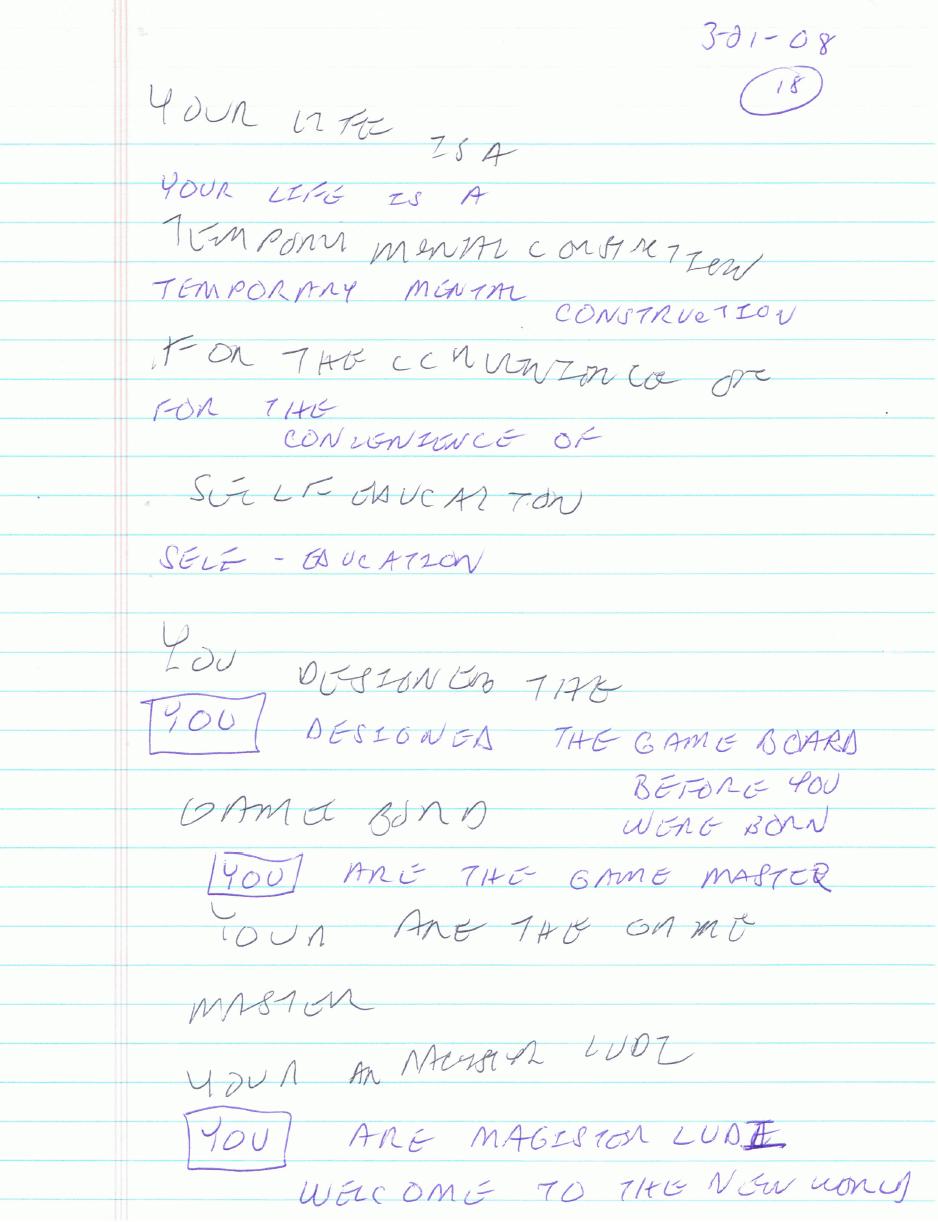 3-21-08
18
YOUR LIFE
IS A
YOUR LIFE IS A
TEMPORY MENTAL CONSTRCTION
TEMPORARY MENTAL
CONSTRUCTION
FOR THE CONVENIENCE OF
FOR THE
CONVENIENCE OF
SELLF EDUCATION
SELF - EDUCATION
YOU DESIGNED THE
YOU DESIGNED THE GAME BOARD
BEFORE YOU
GAME BORD
WERE BORN
YOU ARE THE GAME MASTER
YOUR ARE THE GAME
MASTER
YOUR AR MAGISTER LUDI
YOU ARE MAGISTOR LUDI
WELCOME TO THE NEW WORLD